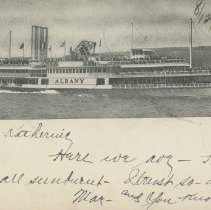 8/
ALBANY
Katherine
Here we are - 
all sunburnt - I trust so-
May- and you